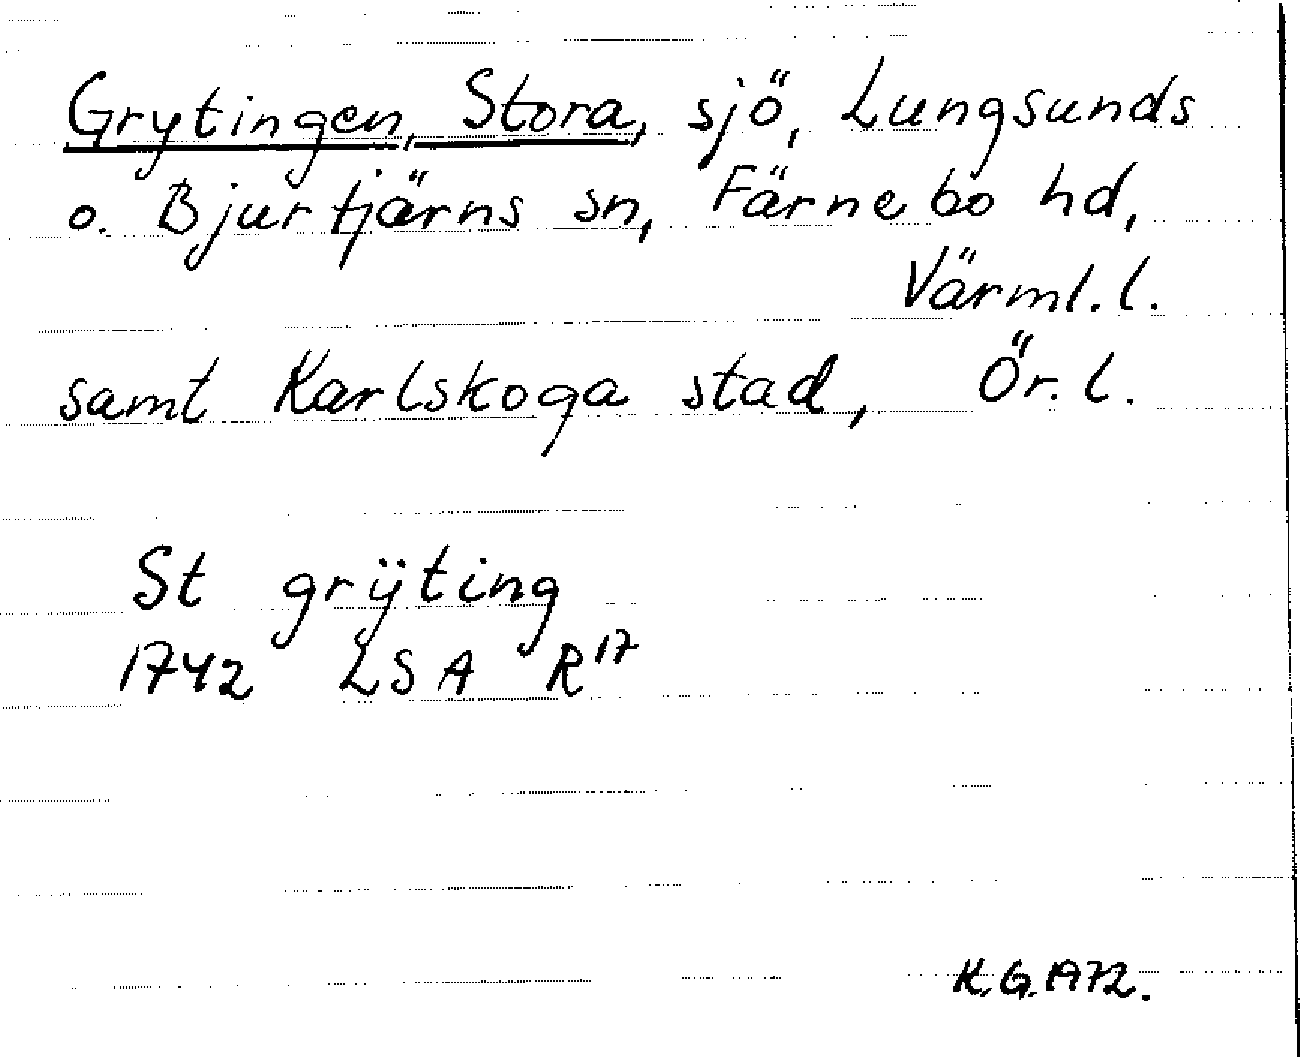 Grytingen, Stora, sjö, Lungsunds
o. Bjurtjärns sn, Färnebo hd,
Värml. l.
samt Karlskoga stad, Ör. l.
St grÿting
1742 LSA R17
K.G. 1972.